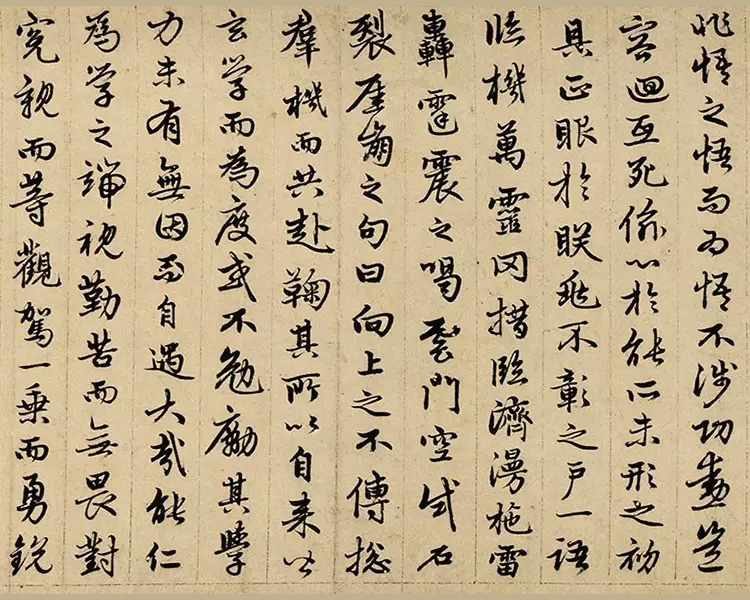 非悟之悟而为悟不涉功勲豈
容迴互死係心於能所未形之初
具正眼於眹兆不彰之戶一語
臨機萬靈罔措臨濟漫施雷
轟霆震之喝雲門空試石
裂崖崩之句曰向上之不傳摠
羣機而共赴鞠其所以自来皆
玄学而為度或不勉勵其學
力未有無因而自遇大哉能仁
為学之端視勤苦而無畏對
冤親而等觀駕一乗而勇銳